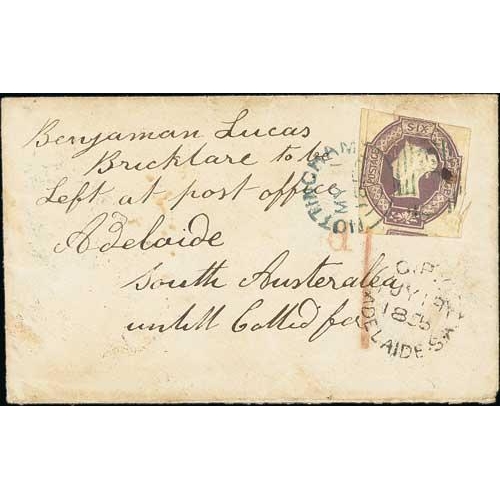 Benjaman Lucas
Bricklare to be
Left at post office
Adelaide
South Australea
untill Called for
SIX
POSTAGE
NOTTINGHAM
1d
G.P.O.
1855
ADELAIDE S.A